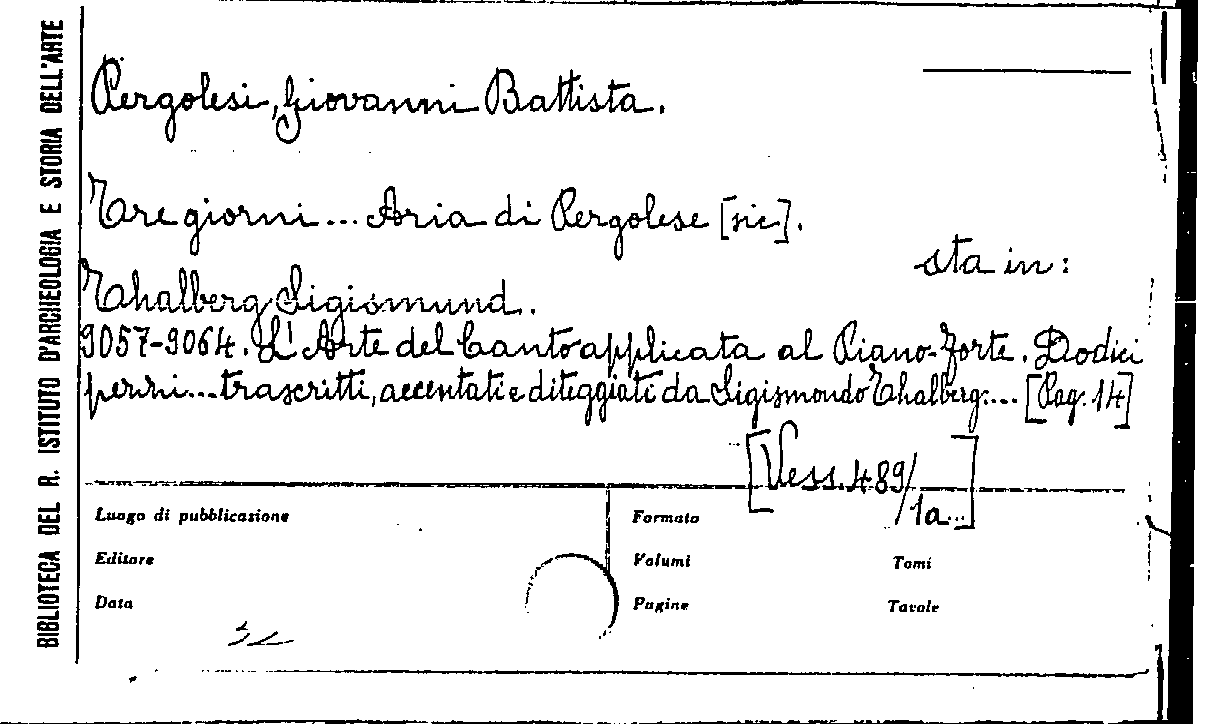 BIBLIOTECA DEL R. ISTITUTO D'ARCHEOLOGIA E STORIA DELL'ARTE
Pergolesi, Giovanni Battista.
Tre giorni... Aria di Pergolese [sic].
sta in:
Thalberg Sigismund.
9057-9064. L'Arte del Canto applicata al Piano-forte. Dodici
pezzi... trascritti, accentati e diteggiati da Sigismondo Thalberg.... [Pag. 14]
[Vess. 489/1a...]
Luogo di pubblicazione
Formato
Editore
Volumi
Tomi
Data
Pagine
Tavole